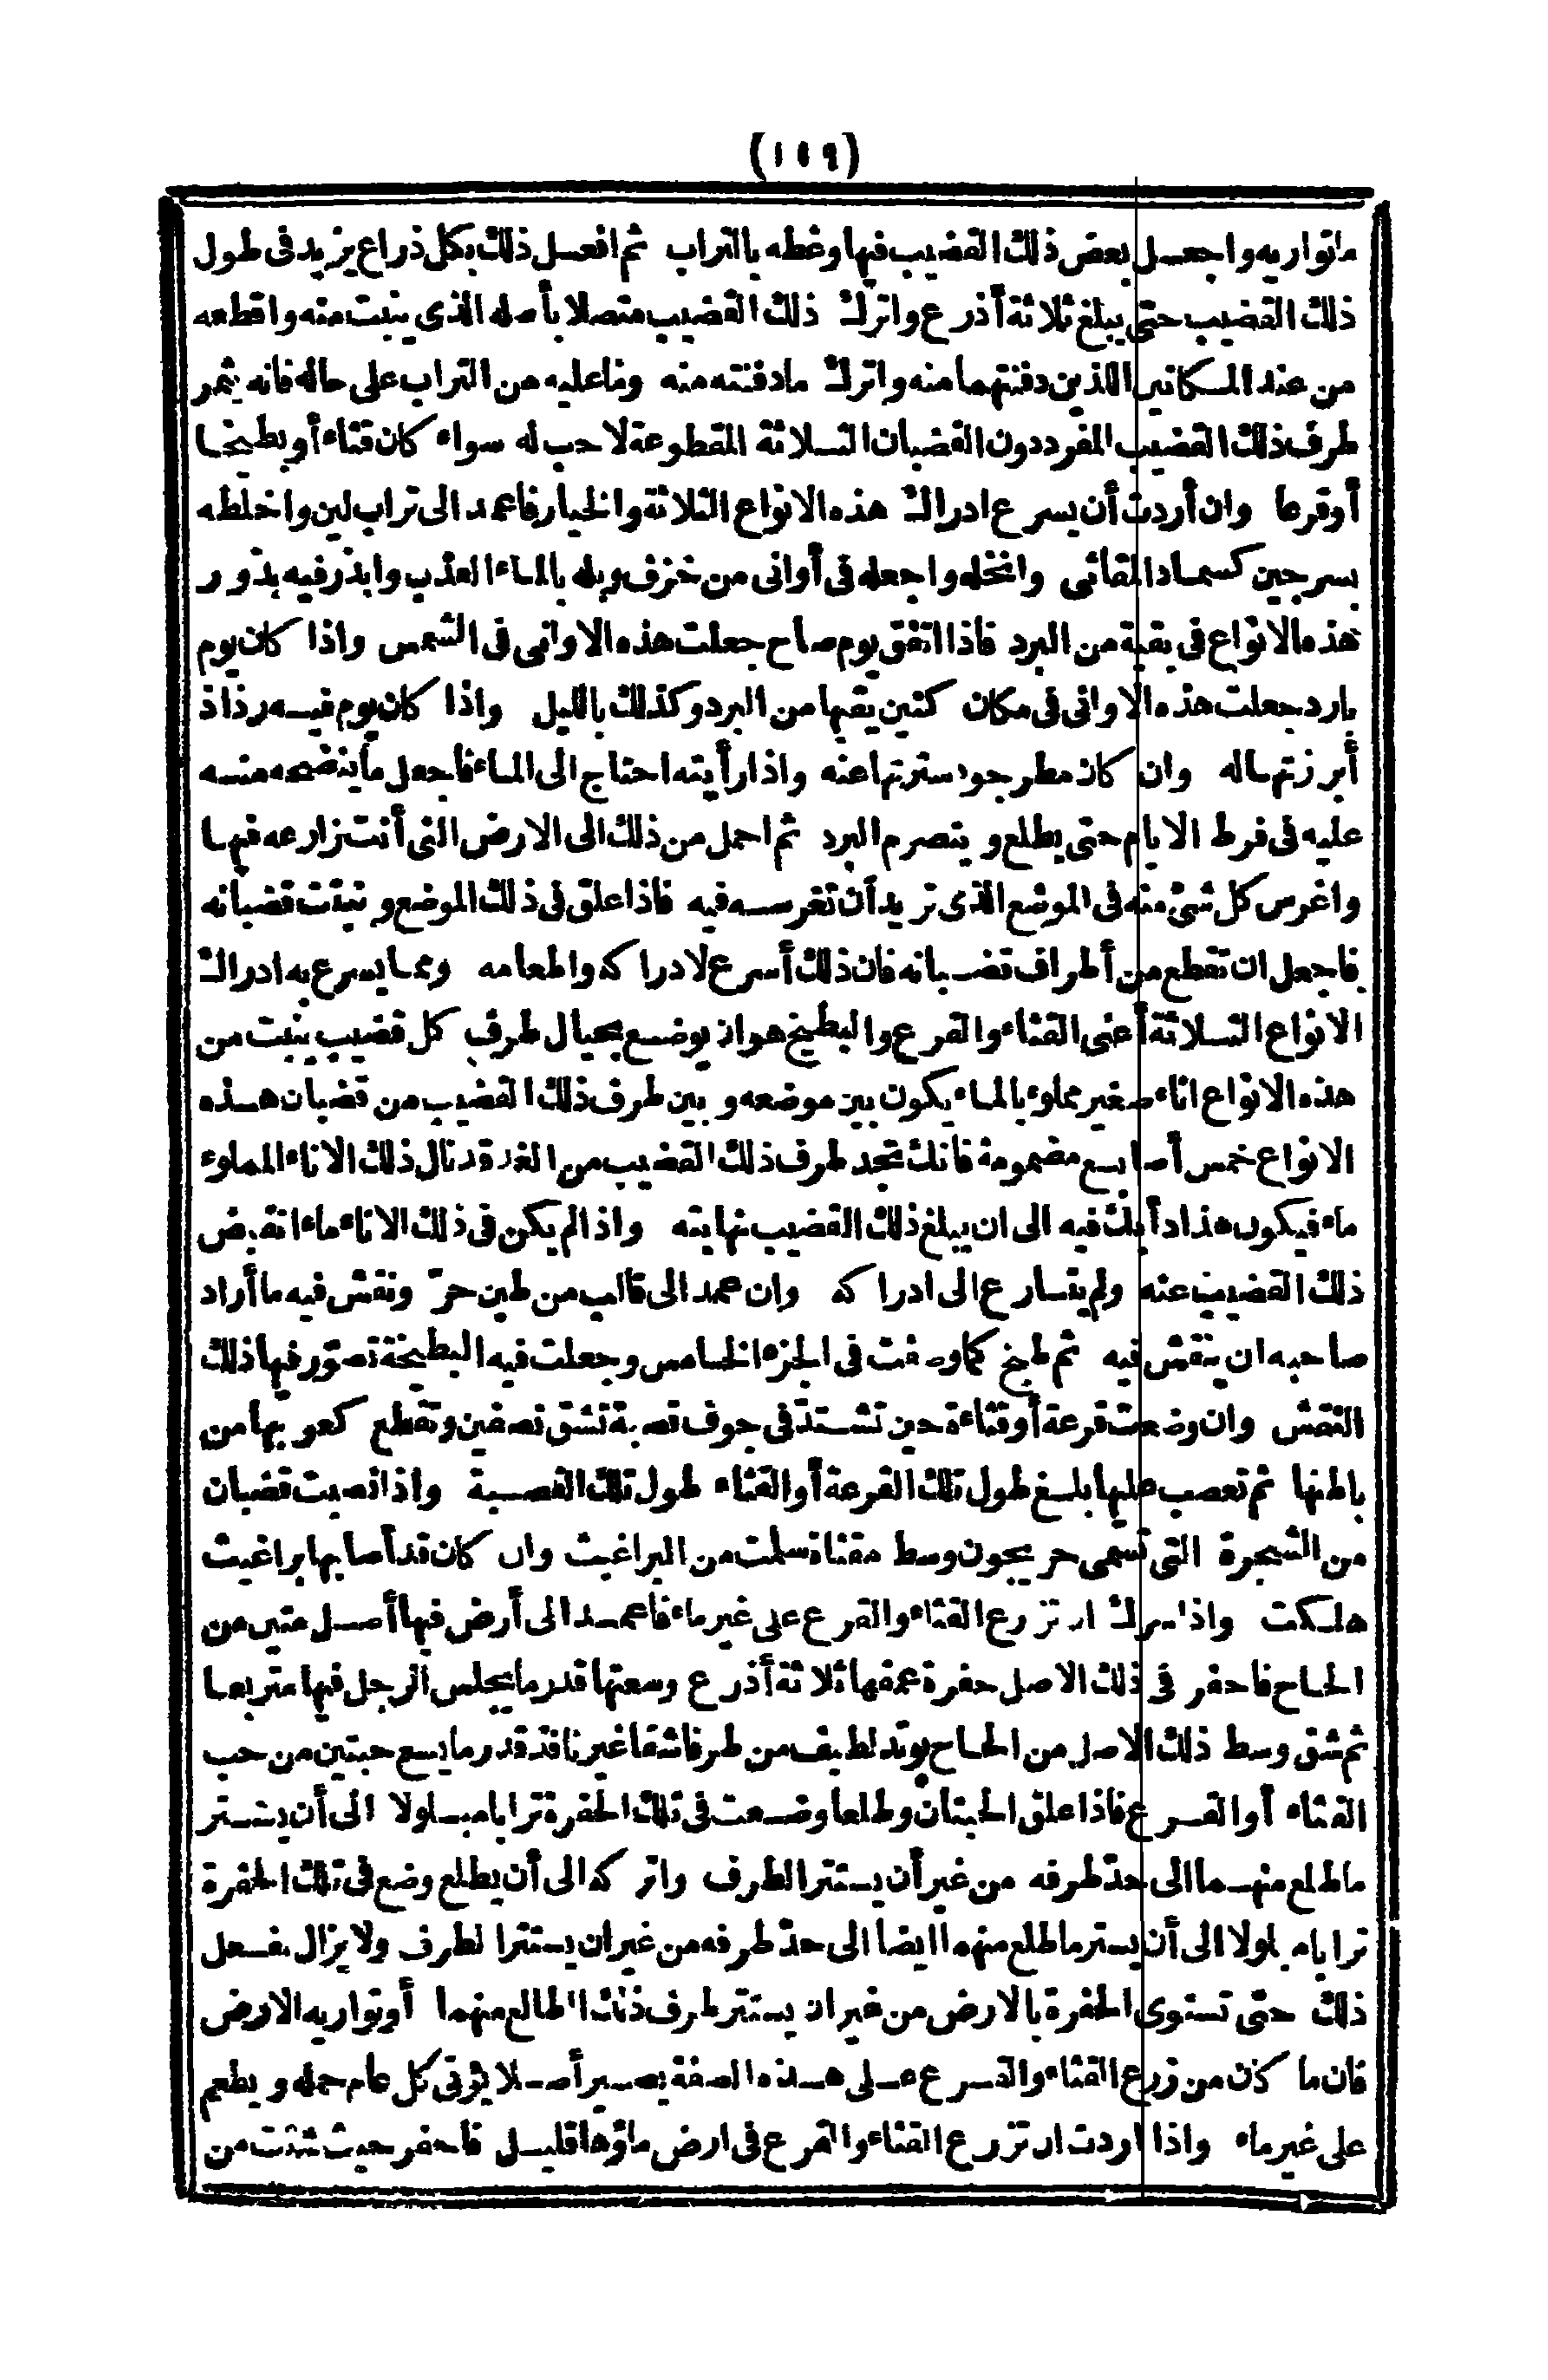 (١٠٩)
ماتواريه واجعل بعض ذلك القضيب فيها وغطه بالتراب ثم افعل ذلك بكل ذراع يزيد فى طول
ذلك القضيب حتى يبلغ ثلاثة أذرع واترك ذلك القضيب متصلا بأصله الذي ينبت منه واقطعه
من عند المكانين اللذين دفنتهما منه واترك مادفنته منه وماعليه من التراب على حاله فانه يثمر
طرف ذلك القضيب المفرد دون القضبان الثلاثة المقطوعة لاحب له سواء كان قثاء أو بطيخا
أو قرعا وان أردت أن يسرع ادراك هذه الانواع الثلاثة والخيار فاعمد الى تراب لين واخلطه
بسرجين كسماد المقاثى وانخله واجعله فى أوانى من خزف وبله بالماء العذب وابذر فيه بذور
هذه الانواع فى بقية من البرد فاذا اتفق يوم صاح جعلت هذه الاوانى فى الشمس واذا كان يوم
بارد جعلت هذه الاوانى فى مكان كنين يقيها من البرد وكذلك بالليل واذا كان يوم فيه رذاذ
أبرزتها له وان كان مطر جود سترتها عنه واذا رأيته احتاج الى الماء فاجعل ماينضحه منه
عليه فى فرط الايام حتى يطلع وينصرم البرد ثم احمل من ذلك الى الارض التى أنت زارعه فيها
واغرس كل شئ منه فى الموضع الذى تريد أن تغرسه فيه فاذا علق فى ذلك الموضع ونبتت قضبانه
فاجعل ان تقطع من أطراف قضبانه فان ذلك أسرع لادراكه واطعامه ومما يسرع به ادراك
الانواع الثلاثة أعنى القثاء والقرع والبطيخ هو ان يوضع بحيال طرف كل قضيب ينبت من
هذه الانواع اناء صغير مملوء بالماء يكون بين موضعه وبين طرف ذلك القضيب من قضبان هذه
الانواع خمس أصابع مضمومة فانك تجد طرف ذلك القضيب من الغد قد نال ذلك الاناء المملوء
ماء فيكون هذا دأبك فيه الى ان يبلغ ذلك القضيب نهايته واذا لم يكن فى ذلك الاناء ماء انقبض
ذلك القضيب عنه ولم يتسارع الى ادراكه وان عمد الى قالب من طين حرّ ونقش فيه ما أراد
صاحبه ان ينقش فيه ثم طبخ كما وصفت فى الجزء الخامس وجعلت فيه البطيخة تصوّر فيها ذلك
النقش وان وضعت قرعة أو قثاءة حين تشتدّ فى جوف قصبة تشق نصفين وتقطع كعوبها من
باطنها ثم تعصب عليها بلغ طول تلك القرعة أو القثاء طول تلك القصبة واذا نصبت قضبان
من الشجرة التى تسمى حريجون وسط مقثاة سلمت من البراغيث وان كان قد أصابها براغيث
هلكت واذا سرك ان تزرع القثاء والقرع على غير ماء فاعمد الى أرض فيها أصل متين من
الحاح فاحفر فى ذلك الاصل حفرة عمقها ثلاثة أذرع وسعتها قدر مايجلس الرجل فيها متربعا
ثم شق وسط ذلك الاصل من الحاح بوتد لطيف من طرفا شقا غير نافذ قدر مايسع حبتين من حب
القثاء أو القرع فاذا علق الحبتان وطلعا وضعت فى تلك الحفرة ترابا مبلولا الى أن يستتر
ماطلع منهما الى حدّ طرفه من غير أن يستتر الطرف واتركه الى أن يطلع وضع فى تلك الحفرة
ترابا مبلولا الى أن يستر ماطلع منهما ايضا الى حدّ طرفه من غير ان يستتر الطرف ولايزال يفعل
ذلك حتى تستوى الحفرة بالارض من غير ان يستتر طرف ذلك الطالع منهما أو تواريه الارض
فان ما كان من زرع القثاء والقرع على هذه الصفة يصير أصلا يؤتى كل عام حمله ويطعم
على غير ماء واذا اردت ان تزرع القثاء والقرع فى ارض ماؤها قليل فاحفر حيث شئت من